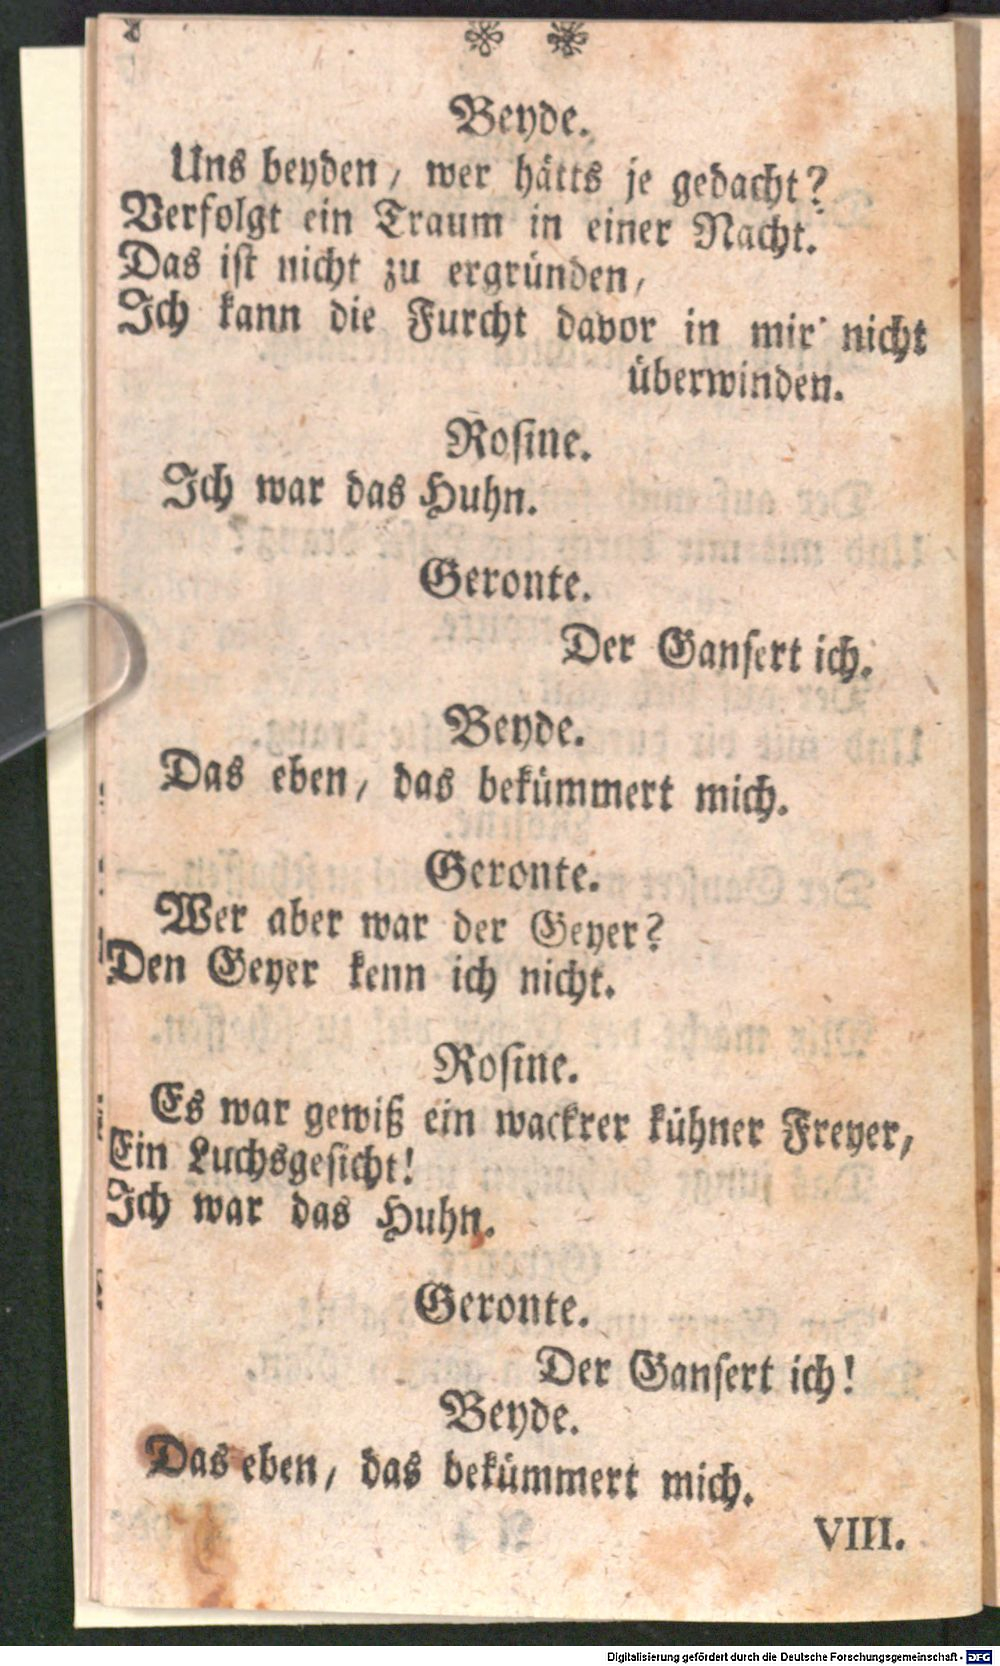 Beyde.
Uns beyden, wer hätts je gedacht?
Verfolgt ein Traum in einer Nacht.
Das ist nicht zu ergründen,
Ich kann die Furcht davor in mir nicht
überwinden.
Rosine.
Ich war das Huhn.
Geronte.
Der Gansert ich.
Beyde.
Das eben, das bekümmert mich.
Geronte.
Wer aber war der Geyer?
Den Geyer kenn ich nicht.
Rosine.
Es war gewiß ein wackrer kühner Freyer,
Ein Luchsgesicht!
Ich war das Huhn.
Geronte.
Der Gansert ich!
Beyde.
Das eben, das bekümmert mich.
VIII.
Digitalisierung gefördert durch die Deutsche Forschungsgemeinschaft - DFG